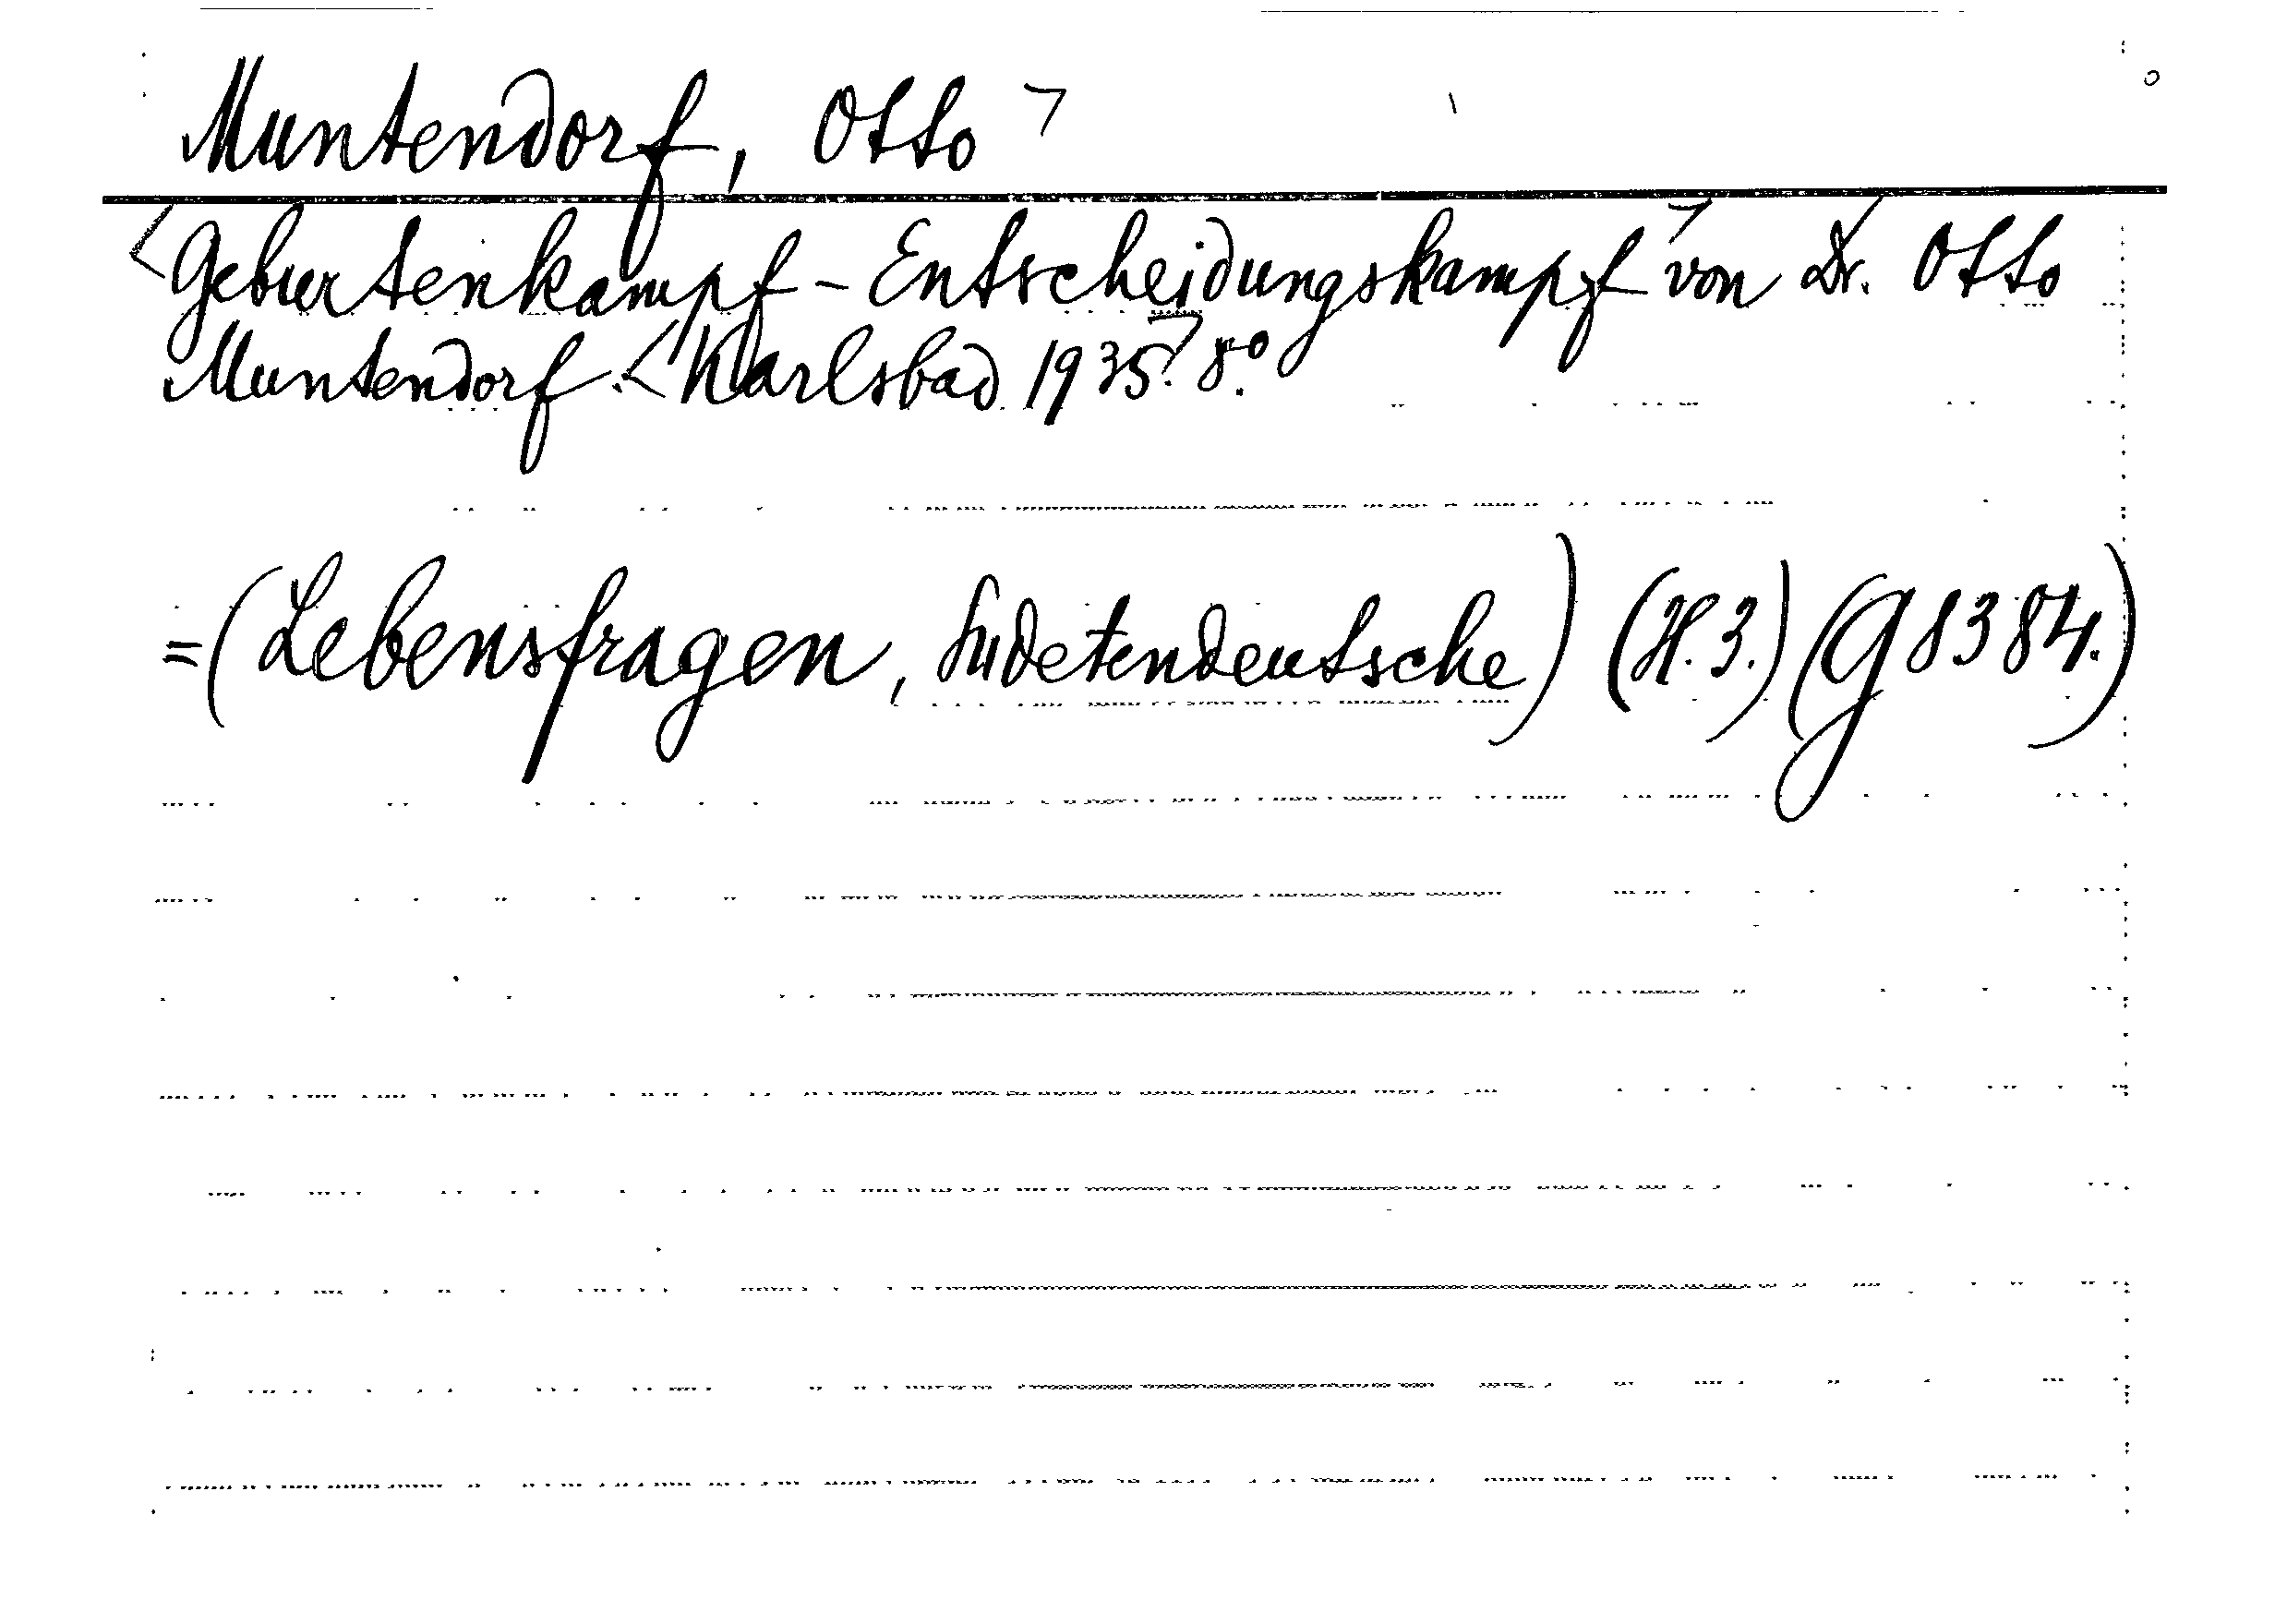 Muntendorf, Otto ㄱ
<Geburtenkampf - Entscheidungskampf ㄱ von Dr. Otto
Muntendorf. <Karlsbad 1935.ㄱ 8.°
=(Lebensfragen, Sudetendeutsche) (H. 3.) (G 8384.)